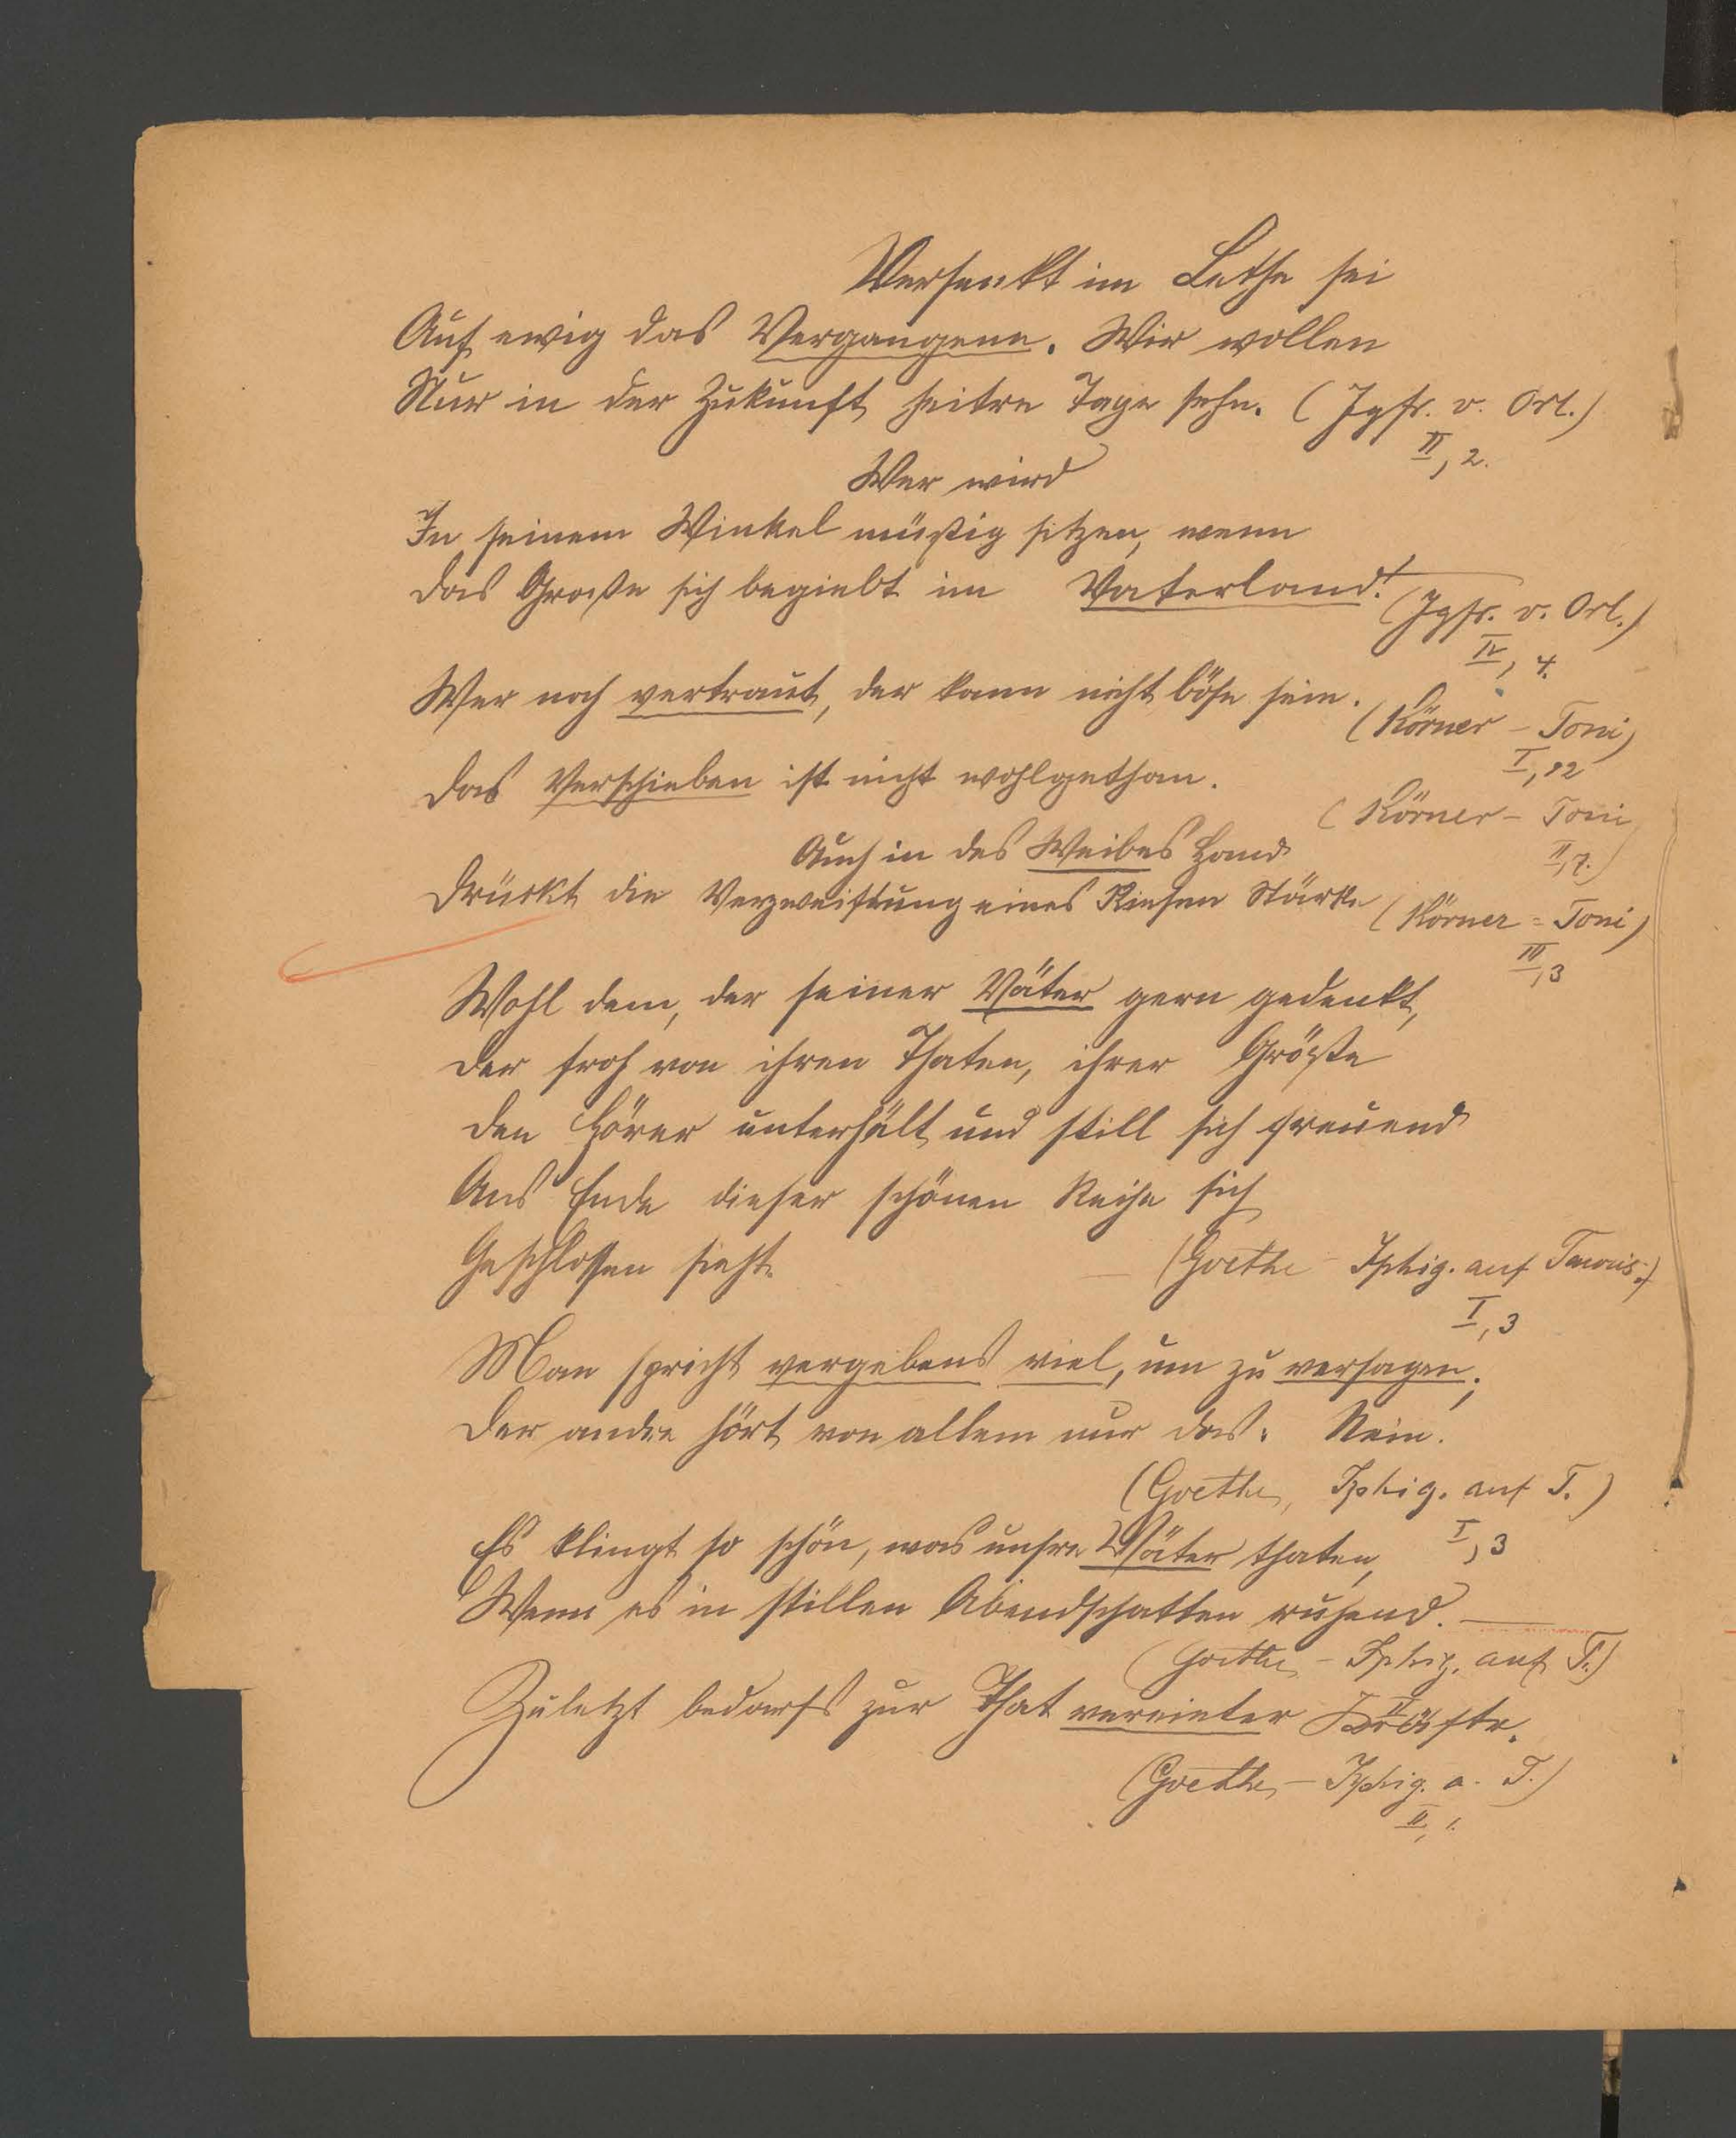 Versenkt im Lethe sei
Auf ewig das Vergangene. Wir wollen
Nur in der Zukunft heitre Tage sehn. (Jgfr. v. Orl.)
II, 2.
Wer wird
In seinem Winkel müßig sitzen, wenn
das Große sich begiebt im Vaterland!
(Jgfr. v. Orl.)
IV, 4.
Wer noch vertraut, der kann nicht böse sein.
(Körner – Toni)
I, 12
Das Verschieben ist nicht wohlgethan.
(Körner – Toni
II, 7.)
Auch in des Weibes Hand
Drückt die Verzweiflung eines Riesen Stärke (Körner = Toni)
III, 3
Wohl dem, der seiner Väter gern gedenkt,
Der froh von ihren Thaten, ihrer Größe
Den Hörer unterhält und still sich freuend
Ans Ende dieser schönen Reihe sich
Geschlossen sieht. – (Goethe – Iphig. auf Tauris.)
I, 3
Man spricht vergebens viel, um zu versagen;
Der andre hört von allem nur das: Nein.
(Goethe, Iphig. auf T.)
I, 3
Es klingt so schön, was unsre Väter thaten,
Wenn es in stillen Abendschatten ruhend. —
(Goethe – Iphig. auf T.)
II
Zuletzt bedarfs zur That vereinter Kräfte.
(Goethe – Iphig. a. T.)
II, 1.